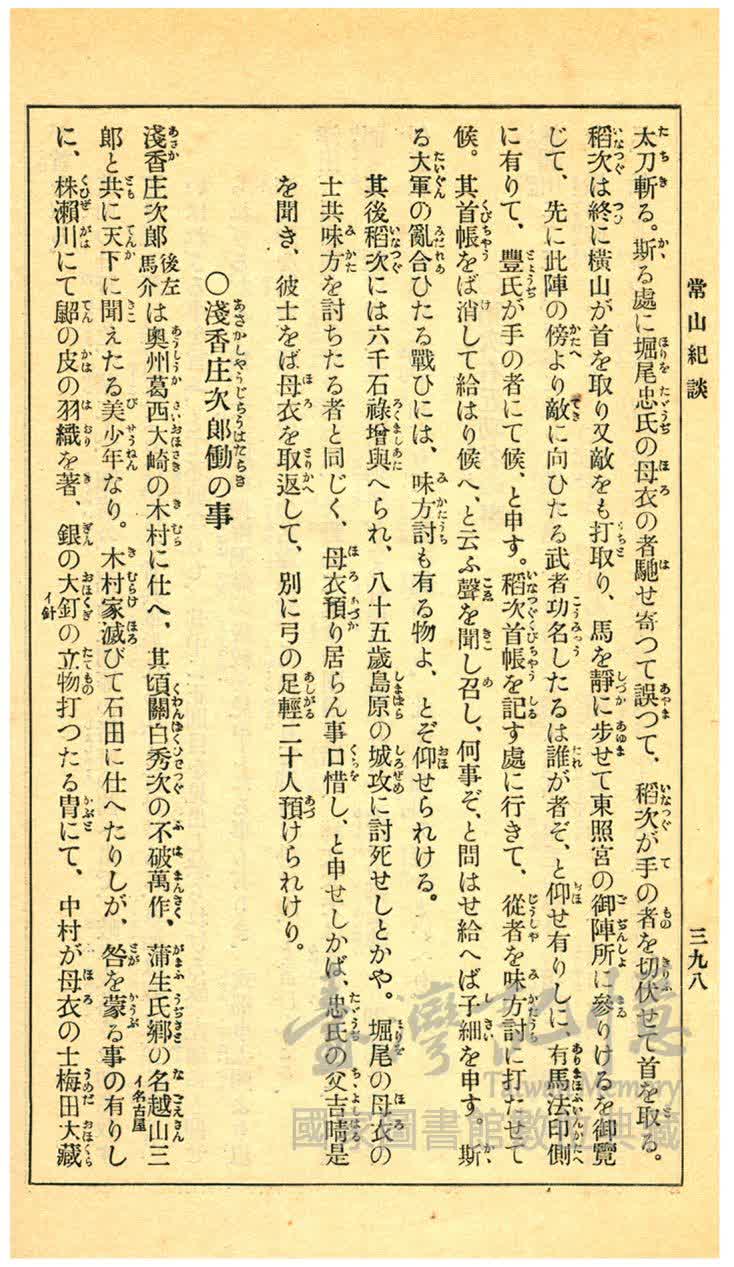 常山紀談
三九八
太刀斬る。斯る處に堀尾忠氏の母衣の者馳せ寄つて誤つて、稻次が手の者を切伏せて首を取る。
稻次は終に橫山が首を取り又敵をも打取り、馬を靜に步せて東照宮の御陣所に參りけるを御覽
じて、先に此陣の傍より敵に向ひたる武者功名したるは誰が者ぞ、と仰せ有りしに、有馬法印側
に有りて、豐氏が手の者にて候、と申す。稻次首帳を記す處に行きて、從者を味方討に打たせて
候。其首帳をば消して給はり候へ、と云ふ聲を聞し召し、何事ぞ、と問はせ給へば子細を申す。斯
る大軍の亂合ひたる戰ひには、味方討も有る物よ、とぞ仰せられける。
其後稻次には六千石祿增與へられ、八十五歲島原の城攻に討死せしとかや。堀尾の母衣の
士共味方を討ちたる者と同じく、母衣預り居らん事口惜し、と申せしかば、忠氏の父吉晴是
を聞き、彼士をば母衣を取返して、別に弓の足輕二十人預けられけり。
〇淺香庄次郎働の事
淺香庄次郎後左馬介は奧州葛西大崎の木村に仕へ、其頃關白秀次の不破萬作、蒲生氏鄕の名越山三
イ名古屋
郎と共に天下に聞えたる美少年なり。木村家滅びて石田に仕へたりしが、咎を蒙る事の有りし
に、株瀨川にて鼦の皮の羽織を著、銀の大釘の立物打つたる冑にて、中村が母衣の士梅田大藏
イ針
臺灣記憶
Taiwan Memory
國家圖書館數位典藏